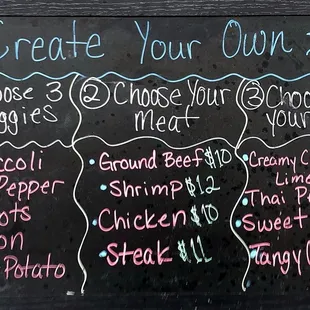 Create Your Own
oose 3
ggies
ccoli
Pepper
ots
on
Potato
② Choose Your
Meat
• Ground Beef $10
• Shrimp $12
• Chicken $10
• Steak $11
③ Choo
your
• Creamy C
Lime
• Thai P
• Sweet
• Tangy